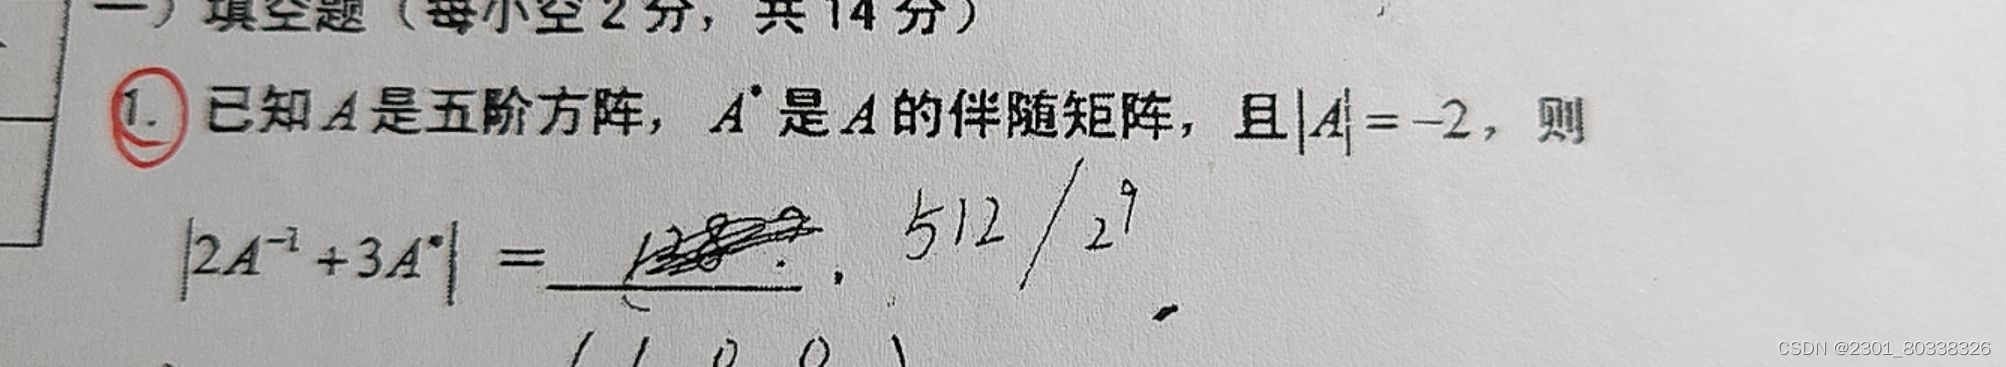 一）填空题（每小空2分，共14分）
1. 已知A是五阶方阵，A*是A的伴随矩阵，且|A|=-2，则
|2A⁻¹+3A*| = ______. 512/2⁹
( 1 0 0 )
CSDN @2301_80338326